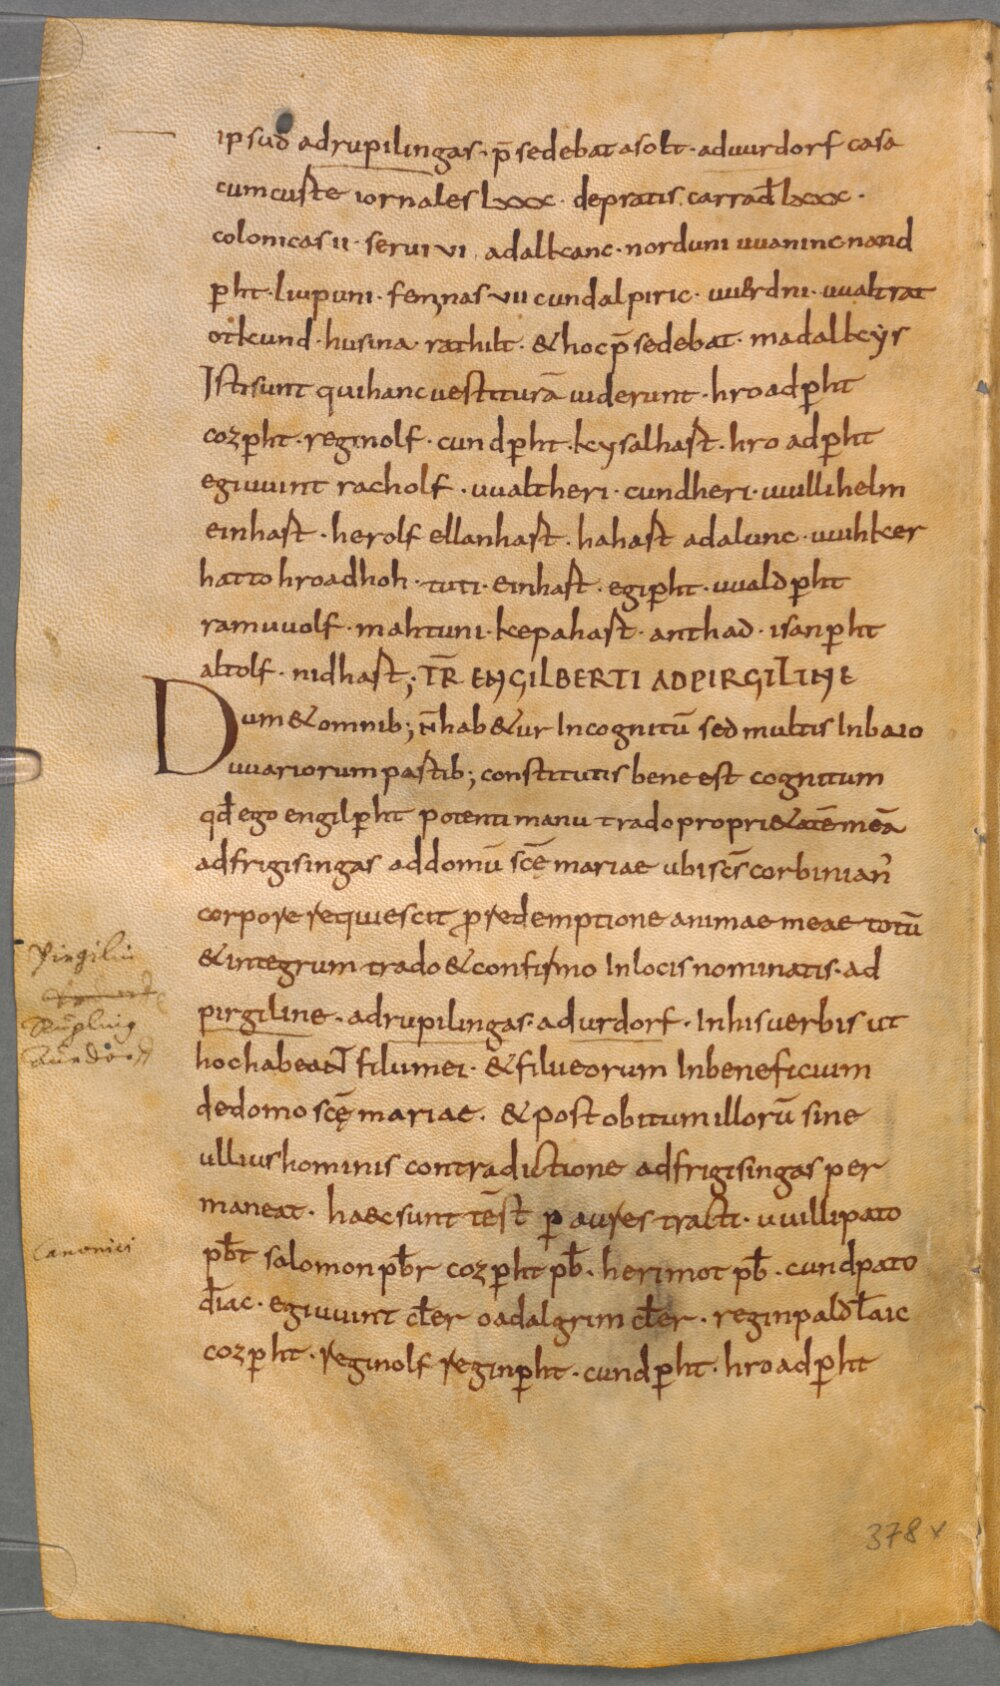 ipsud adrupilingas · p̄sedebat asolt · aduurdorf casa
cumcuste iornales lxxx · depratis carrad̄ lxxx ·
colonicas ii · serui vi adalkanc · norduni uuanincnand
ꝑht · liupuni · feminas vii cundalpiric · uu&rdni · uualtrat
otkund · husina · rathilt · & hoc p̄sedebat · madalkeẏr
Istisunt quihancuestiturā uiderunt · hroadꝑht
cozꝑht · reginolf · cundꝑht · keysalhast · hroadꝑht
egiuuint racholf · uualtheri · cundheri · uuillihelm
einhast · herolf ellanhast · hahast adalunc · uuihker
hatto hroadhoh · tuti · einhast · egiꝑht · uualdꝑht
ramuuolf · mahtuni · kepahast · anthad · isanꝑht
altolf · nidhast ; TR̄ ENGILBERTI ADPIRGILINE
Dum & omnib; n̄ hab&ur Incognitū sed multis Inbaio
uuariorum pastib; constitutis bene est cognitum
qđ ego engilꝑht potenti manu trado propri&atē meā
adfrigisingas addomū scē mariae ubi scs̄ corbinian̓
corpore requiescit ꝓ redemptione animae meae totū
& integrum trado & confirmo Inlocis nominatis · ad
pirgiline · adrupilingas · adurdorf · Inhis uerbis ut
hoc habeant filii mei · & filii eorum Inbeneficium
dedomo scē mariae · & post obitum illorū sine
ullius hominis contradictione adfrigisingas per
maneat · haec sunt tēst ꝑ aures tracti · uuillipato
pb̄t salomon pb̄r cozꝑht pb̄ · herimot pb̄ · cundpato
d̄iac · egiuuint cl̄er oadalgrim cl̄er · reginpald l̄aic
cozꝑht · reginolf reginꝑht · cundꝑht · hroadꝑht
Pirgilin
Rupling
Canonici
378 v